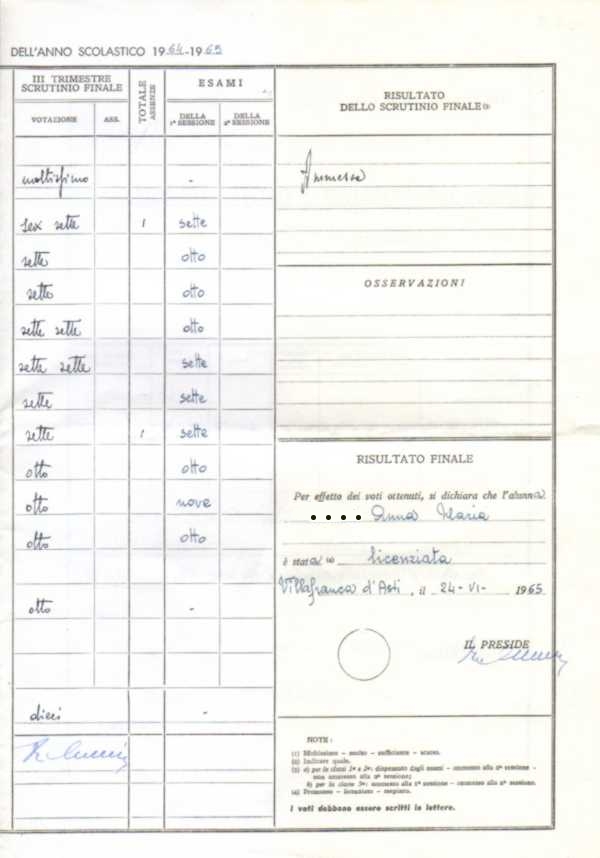 DELL'ANNO SCOLASTICO 1964-1965
III TRIMESTRE
SCRUTINIO FINALE
TOTALE
ASSENZE
ESAMI
VOTAZIONE
ASS.
DELLA
1ª SESSIONE
DELLA
2ª SESSIONE
moltissimo -
sex sette 1 sette
sette otto
sette otto
sette sette otto
sette sette sette
sette sette
sette 1 sette
otto otto
otto nove
otto otto
otto -
dieci -
RISULTATO
DELLO SCRUTINIO FINALE
Ammessa
OSSERVAZIONI
RISULTATO FINALE
Per effetto dei voti ottenuti, si dichiara che l'alunna
.... Anna Maria
è stata licenziata
Villafranca d'Asti, il 24-VI- 1965
IL PRESIDE
NOTE:
(1) Moltissimo - molto - sufficiente - scarso.
(2) Indicare quale.
(3) a) per le classi 1ª e 2ª: dispensato dagli esami - ammesso alla 2ª sessione -
non ammesso alla 2ª sessione;
b) per la classe 3ª: ammesso alla 1ª sessione - ammesso alla 2ª sessione.
(4) Promosso - licenziato - respinto.
I voti debbono essere scritti in lettere.